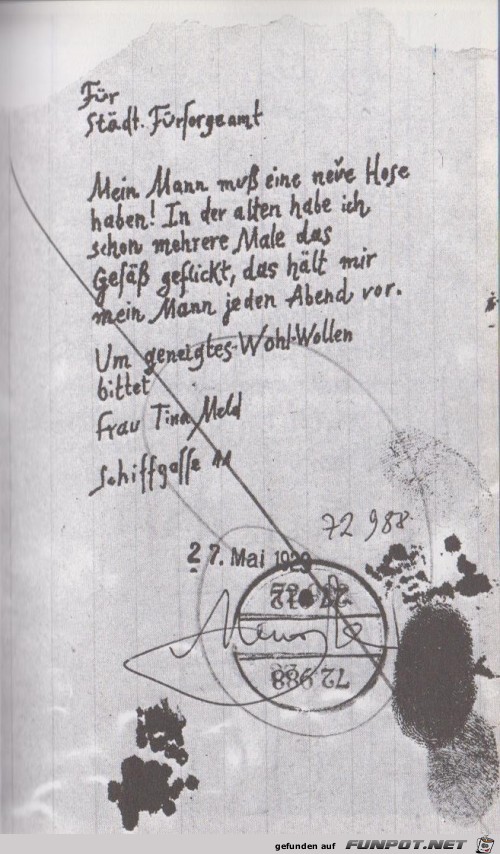 Für
Städt. Fürsorgeamt
Mein Mann muß eine neue Hose
haben! In der alten habe ich
schon mehrere Male das
Gefäß geflickt, das hält mir
mein Mann jeden Abend vor.
Um geneigtes Wohl-Wollen
bittet
Frau Tina Meld
Schiffgasse 11
72 988
27. Mai 1929
72 988
gefunden auf FUNPOT.NET